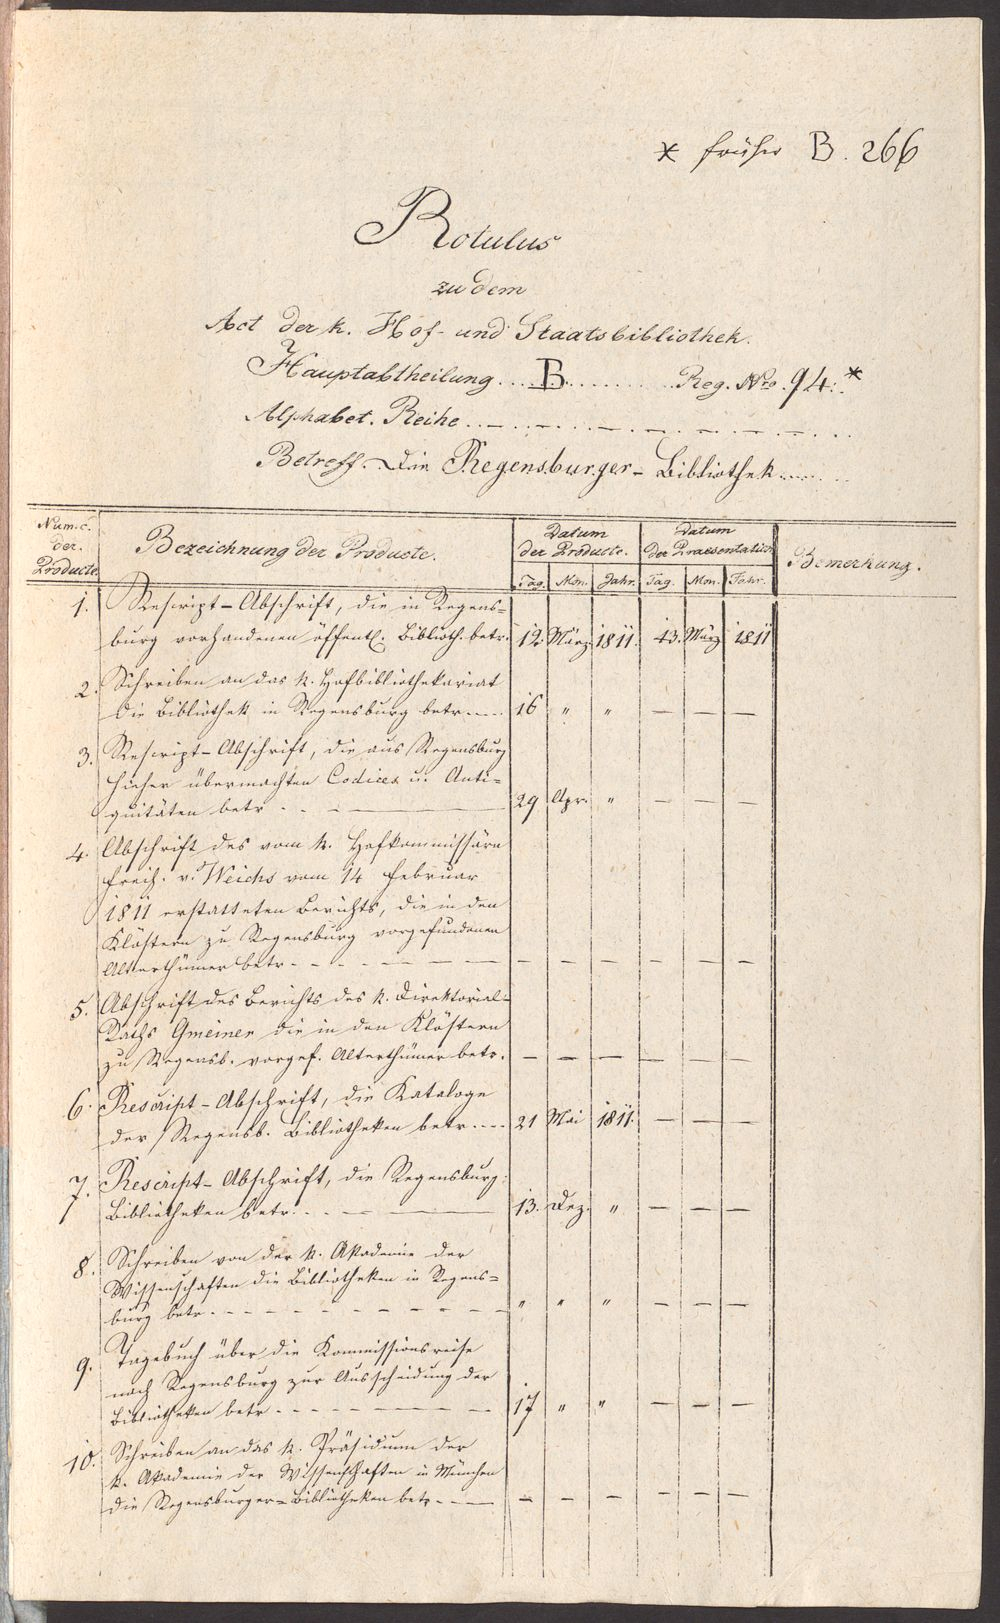 * früher B. 266
Rotulus
zu dem
Act der k. Hof- und Staatsbibliothek.
Hauptabtheilung.... B......... Reg. Nro. 94.*
Alphabet. Reihe
Betreff. Die Regensburger-Bibliothek
Num. c. der. Producte.
Bezeichnung der Producte.
Datum der Producte.
Datum der Praesentation
Bemerkung.
Tag. Mon. Jahr. Tag. Mon. Jahr.
1. Rescript-Abschrift, die in Regens=
burg vorhandenen öffentl. Biblioth. betr. 12. März 1811. 13. März 1811
2. Schreiben an das k. Hofbibliothekariat
die Bibliothek in Regensburg betr. 16 " " — — —
3. Rescript-Abschrift, die aus Regensburg
hieher übermachten Codices u. Anti=
quitäten betr. 29 Apr. " — — —
4. Abschrift des vom k. Hofkommissärn
Freih. v. Weichs vom 14 Februar
1811 erstatteten Berichts, die in den
Klöstern zu Regensburg vorgefundenen
Alterthümer betr. — — — — — —
5. Abschrift des Berichts des k. Direktorial-
Raths Gmeiner die in den Klöstern
zu Regensb. vorgef. Alterthümer betr. — — — — — —
6. Rescript-Abschrift, die Kataloge
der Regensb. Bibliotheken betr. 21 Mai 1811. — — —
7. Rescript-Abschrift, die Regensburg.
Bibliotheken betr. 13. Dez. " — — —
8. Schreiben von der k. Akademie der
Wissenschaften die Bibliotheken in Regens=
burg betr. " " " — — —
9. Tagebuch über die Kommissionsreise
nach Regensburg zur Ausscheidung der
Bibliotheken betr. 17 " " — — —
10. Schreiben an das k. Präsidium der
k. Akademie der Wissenschaften in München
die Regensburger=Bibliotheken betr. — — — — — —